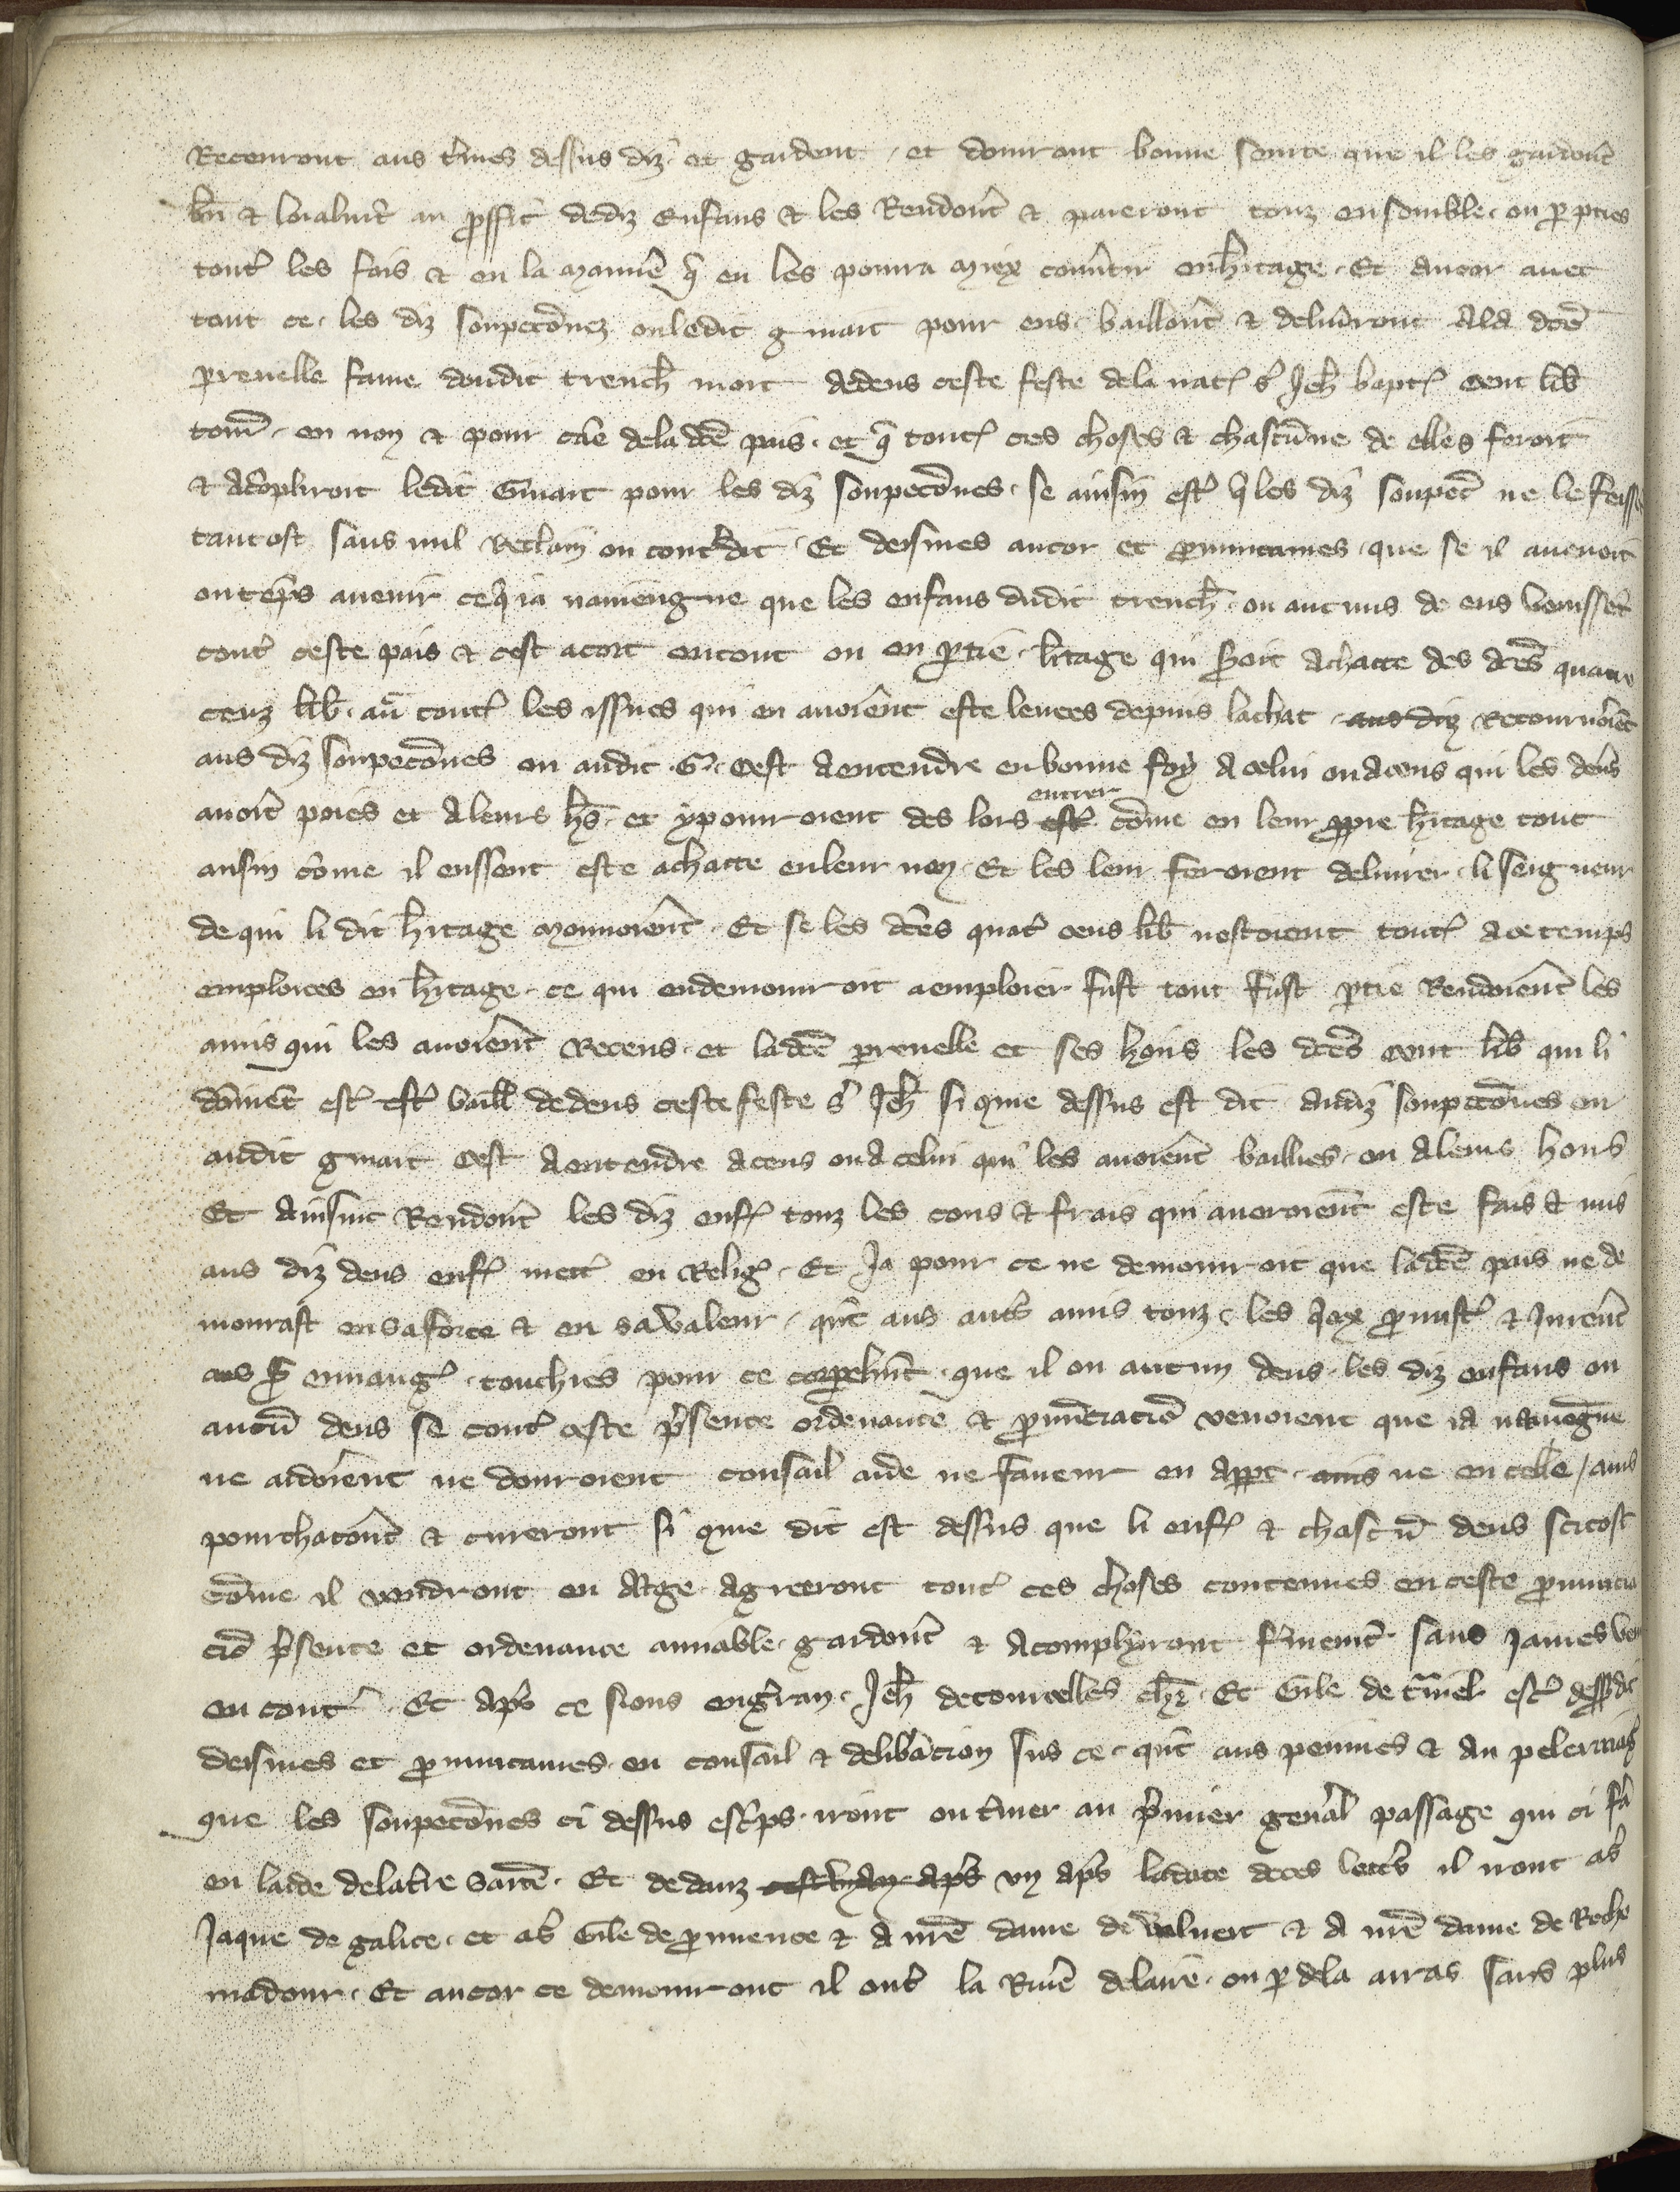 Recevront aus t'mes dessus diz et gardent, et donrront bonne seurte que il les gardont
bn̄ & loialmt̄ au p̄ffit dediz Enfans & les Rendont & paieront touz ensemble. ou p pties
tout' les fois & en la Manie q̄ en les pourra miex cōuertir en h'itage. Et Ancor avec
tout ce. les diz soupeco'nez ou ledit g muart pour eus. baillont & deliuront Ala dcē
perrenelle fame doudit trench' mort dedens ceste feste dela nat' s' Jeh' bapt' cent lib'
tourn'. en non & pour cāe dela dcē pais. et q̄ tout' ces choses & chascūne de elles feroit
& Acōpliroit ledit Guart pour les diz soupecōnes. se ainsin est' q̄ les diz soupec' ne le feisse
tantost sans nul Reclain ou cont'dit. Et deismes ancor et p̄nuncames. que se il auenoit
ou tēps auenir ce q̄ ia nauiengne que les enfans dudit trench'. ou aucuns de eus venissēt
cont' ceste pais & cest acort en tout ou en ptie. litage qui s'oit Achatte des dcēs quatre
cenz lib'. au tout' les issues qui en auoient este leuees depuis lachat aus diz Retourn'oiēt
aus diz soupecōnes ou audit .G. Cest Aentendre en bonne foy A celui ou Aceus qui les den's
auoit paies et A leurs h's. et ypourroient des lors est' entrer cōme en leur ppre h'itage tout
ainsin cōme il eussent este achatte en leur non. Et les leur feroient deliurer. li seigneur
de qui li dit h'itage mouuoient. Et se les dcēs quat' cens lib' nestoient tout' A ce temps
emploiees en h'itage. ce qui en demourroit aemploier fust tout fust ptie Rendoient les
amis qui les auoient Receus. et ladcē perrenelle et ses hoirs les dcēs cent lib' qui li
doiuent est' est' baill' dedens ceste feste s' Jeh' si qme dessus est dit audiz soupecōnes ou
audit gmart Cest Aentendre Aceus ou A celui qui les auoient baillies. ou A leurs hoirs
Et Ainsinc Rendont les diz enf' touz les cous & frais qui aueroient este fais & mis
aus diz deus enf' mett' en Relig'. Et Ja pour ce ne demourroit que ladcē pais ne de
mourast en sa force & en sa valeur. qnt aus aut's amis touz. les q̄ex p̄mist' & Jurent
aus s' euuang'. touchies pour ce corpelmt. que il ou aucun deus. les diz enfans ou
aucū deus se cont' ceste p'sente ordenance & p̄nūciaciō venoient que ia nauiēgne
ne aidoient ne donroient consail aide ne faueur en appt. amis ne en celle / ains
pourchacont & cureront si qme dit est dessus que li enf' & chascū deus sitost
cōme il vendront en Aage Agreeront tout' ces choses contenues en ceste p̄nuncia
ciō p'sente et ordenance amiable. gardont & Acompliront f'mement. sans James ven
en cont'. Et Ap's ce nous eng'ran. Jeh' de courcelles ch'r. Et Gile de t'mel est' dessusdit
deismes et p̄nuncames. eu consail & delib'acion sus ce. qnt aus pennies & Au pelerinag'
que les soupecōnes ci dessus esc'ps. iront out'mer au p'mier gen'al passage qui ci f'a
en laide de la t're Sāite. Et dedanz vn ap's la date deces lett's il iront A s'
Jaque de galice. et A s' Gile de p̄uuence & A nr̄e dame de valuert & A nr̄e dame de Roche
madour. Et ancor ce demourront il out' la Riuē de laire. ou p dela arras sans plus